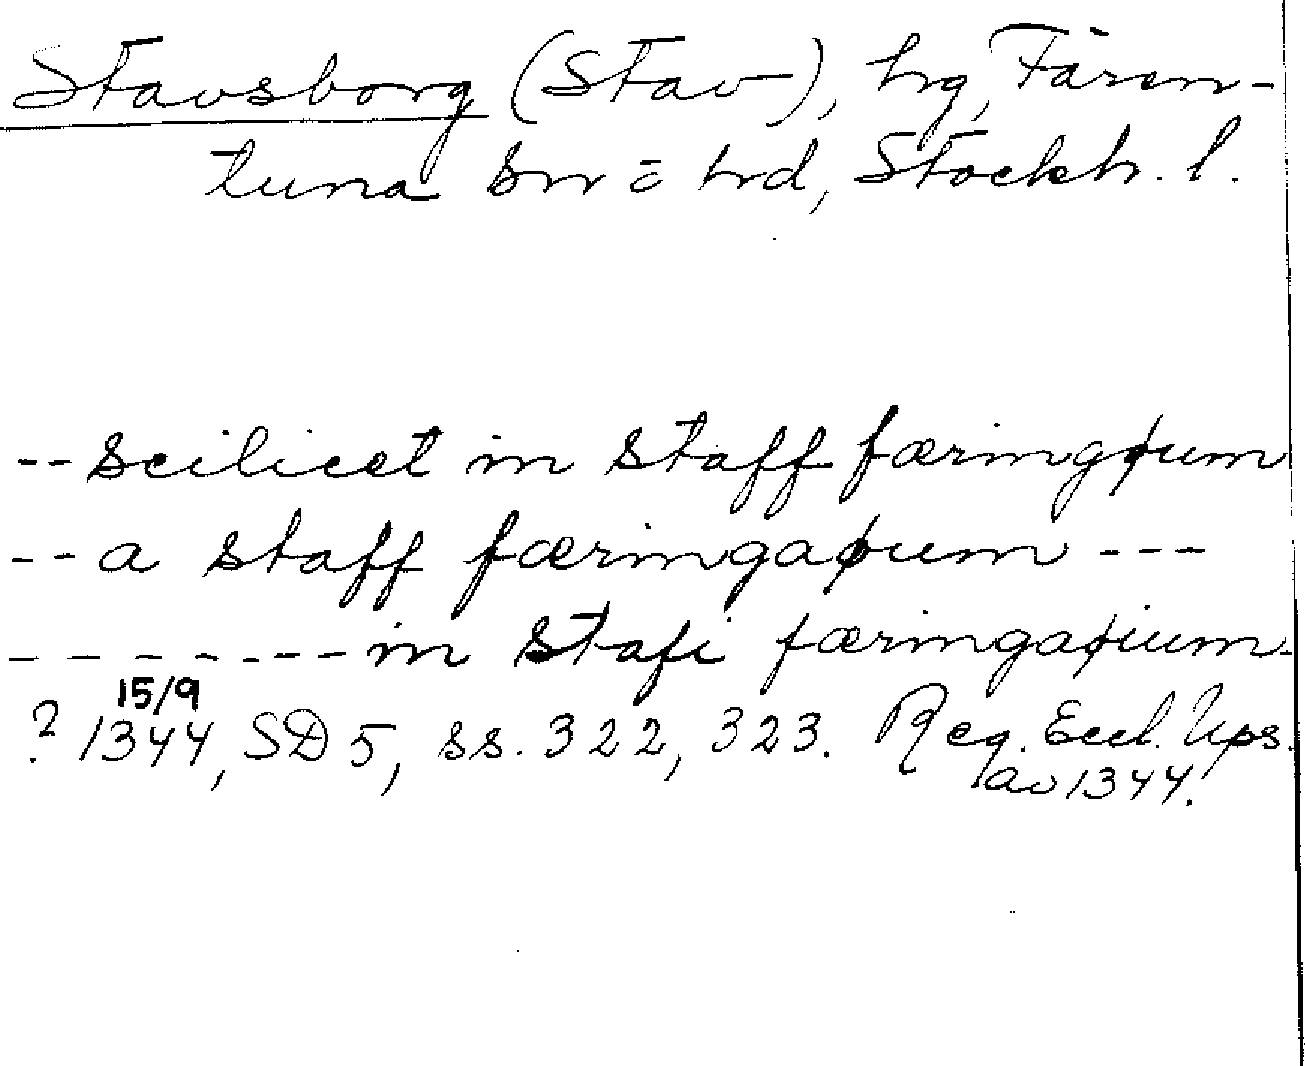 Stavsborg (Stav), hg, Fären-
tuna sn o hd, Stockh. l.
-- scilicet in staff færingþum
-- a staff færingaþum ---
------- in Stafi færingaþium-
15/9
? 1344, SD 5, ss. 322, 323. Reg. Eccl. Ups.
av 1344.